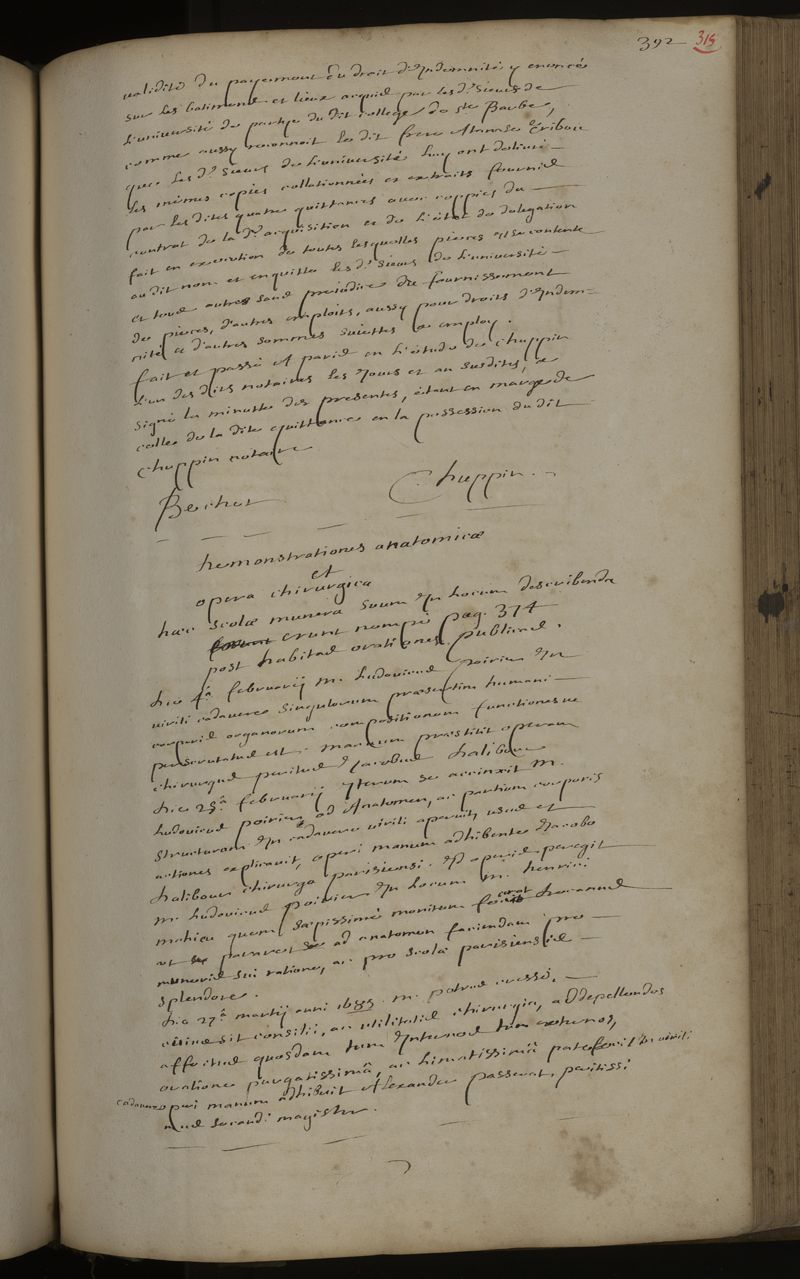 392 315
validité du payement du droit d'Indemnité y enoncée
sur les batimens et lieux acquis par les d. sieurs de
L'université de partye du dit college de Ste Barbe,
comme aussy reconnoit le dit frere Tribou
que les d. sieurs de L'université luy ont delivré
les mêmes copies collationnées et extraits fournie
par les dites quatre quittances avec coppies du
contrat de la d. acquisition et de l'état de delegation
fait en execution de toutes lesquelles pieces il se contente
au dit nom et en quitte les d. sieurs de L'université
et tous autres sans prejudice du fournissement
de pieces, d'autres emplois, aussy pour droits d'Indem=
nité et d'autres sommes suiettes a employ.
fait et passé a paris en l'étude de Chuppin
L'un des dits notaires les jours et an susdits, et
signé la minutte des presentes, étant en marge de
celle de la dite quittance en la possession du dit
Chuppin notaire
Bechet Chuppin
Demonstrationes anatomicæ
et
opera chirurgica
hæc scolæ munera suum In locum describenda
erunt nempe pag. 374
post habitas orationes publicas.
hic 4a. februarij M. Ludovicus poirier In
virili cadavere singulorum præsertim humani
corporis organorum compositionem functionesve
perscrutatus est. manum præstitit operam
chirurgus peritus Jacobus halibour
hic 28a. februarij yterum se accinxit M.
Ludovicus poirier ad Anatomen, ac partium corporis
structuram In cadavere virili aperuit, usus et
actiones explicavit, operi manum adhibente Jacobo
halibour chirurgo parisiensi. Id operis peregit
M. Ludovicus poirier In locum M. henrici
mahieu quem sæpissime monitum
ut pararet se ad anatomen faciendam pro
muneris sui ratione, ac pro scolæ parisiensis
splendore.
hic 27a. martij anni 1685. M. petrus cressé,
cuius sit consilii, ac utilitatis chirurgia, ad depellendos
affectus quosdam tum Internos tum externos,
oratione purgatissimâ, ac limatissimâ patefecit In virili
cadavere operi manum adhibuit Alexander passerat, peritissi
mus secandi magister.